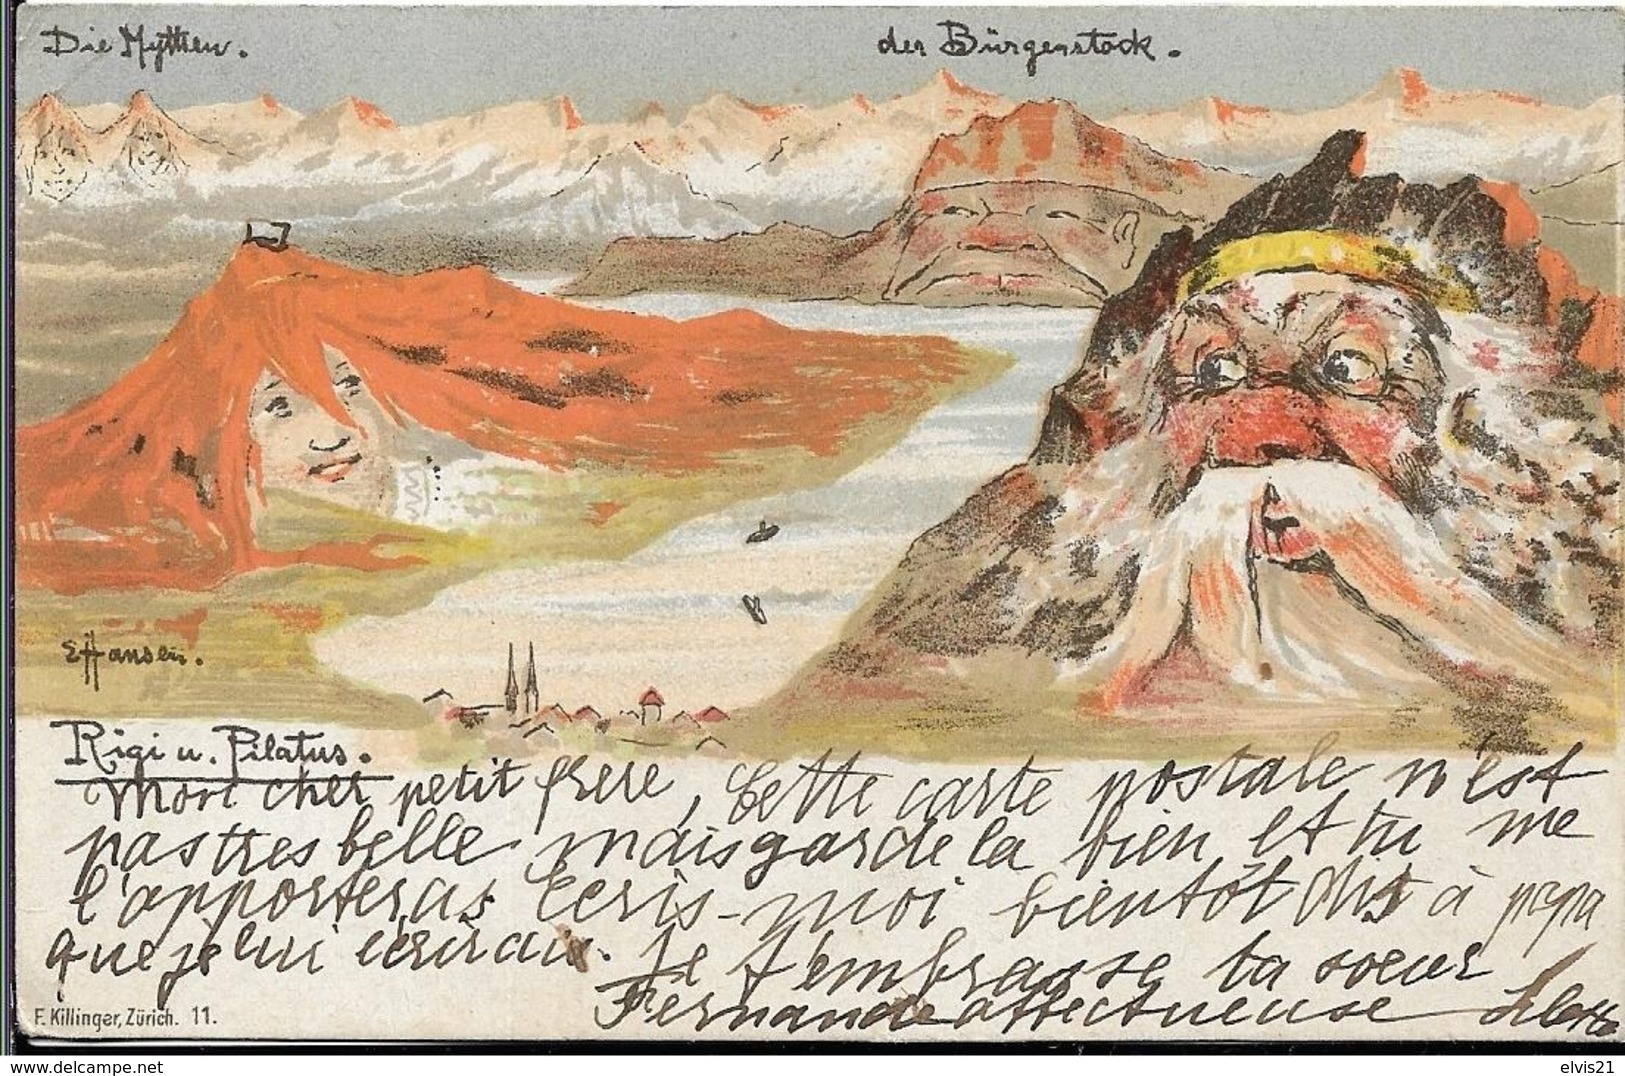 Die Mythen.
der Bürgenstock.
EHansen.
Rigi u. Pilatus.
Mon cher petit frere, Cette carte postale n'est
pas tres belle mais garde la bien et tu me
l'apporteras Ecris-moi bientôt dis à papa
que je lui écrirais. Je t'embrasse ta soeur
Fernande affectueuse
F. Killinger, Zürich. 11.
delcampe.net
elvis21